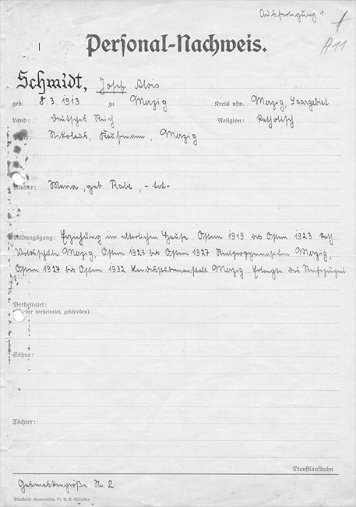 Personal-Nachweis.
A 11
Schmidt, Josef Alois
geb. 8.3.1913 zu Merzig Kreis usw. Merzig, Saargebiet
Land: Deutsches Reich Religion: katholisch
Nikolaus, Kaufmann, Merzig
Mutter: Maria, geb. - tot -
Bildungsgang: Erziehung im elterlichen Hause. Ostern 1919 bis Ostern 1923 kath.
Volksschule Merzig, Ostern 1923 bis Ostern 1927 Realprogymnasium Merzig,
Ostern 1927 bis Ostern 1932 Merzig. Erlangte das Reifezeugnis
Verheiratet:
(oder verheiratet, geschieden)
Söhne:
Töchter:
Dienstlaufbahn
Gasmaskengröße Nr. 2